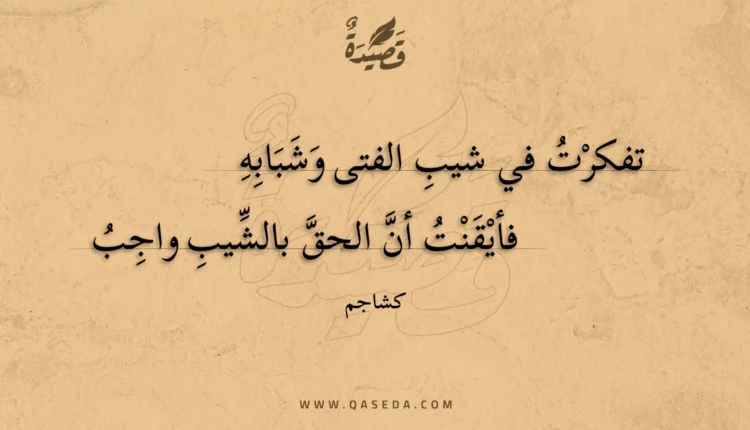 قَصِيْدَةٌ
تفكرْتُ في شيبِ الفتى وَشَبَابِهِ
فأيْقَنْتُ أنَّ الحقَّ بالشِّيبِ واجِبُ
كشاجم
WWW.QASEDA.COM